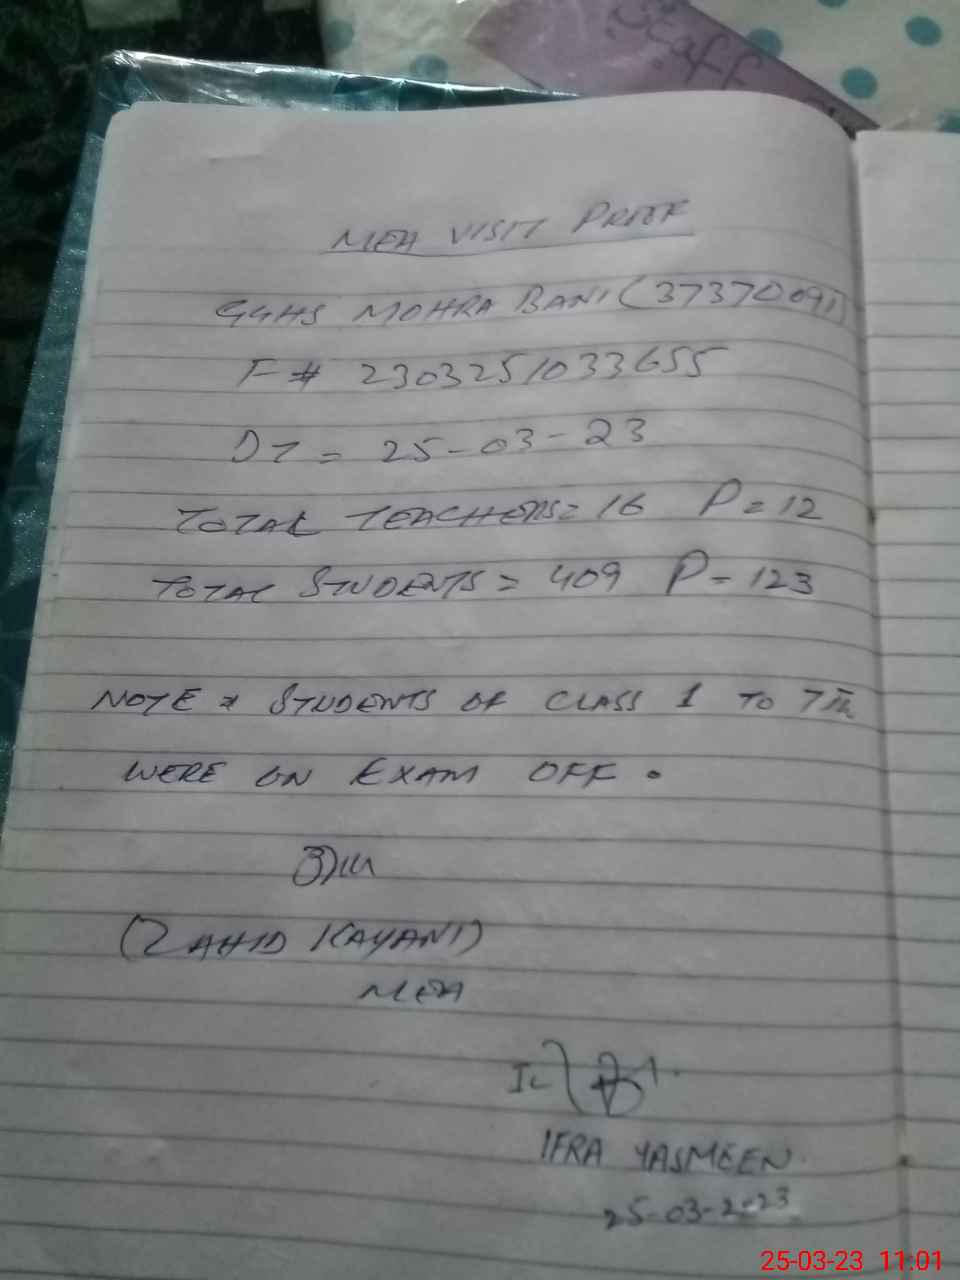 Staff
MEA VISIT PROOF
GGHS MOHRA BANI (37370091)
F # 2303251033655
DT = 25-03-23
TOTAL TEACHERS = 16 P = 12
TOTAL STUDENTS = 409 P - 123
NOTE * STUDENTS OF CLASS 1 TO 7Th
WERE ON EXAM OFF .
(ZAHID KAYANI)
MEA
IFRA YASMEEN
25-03-2023
25-03-23 11:01